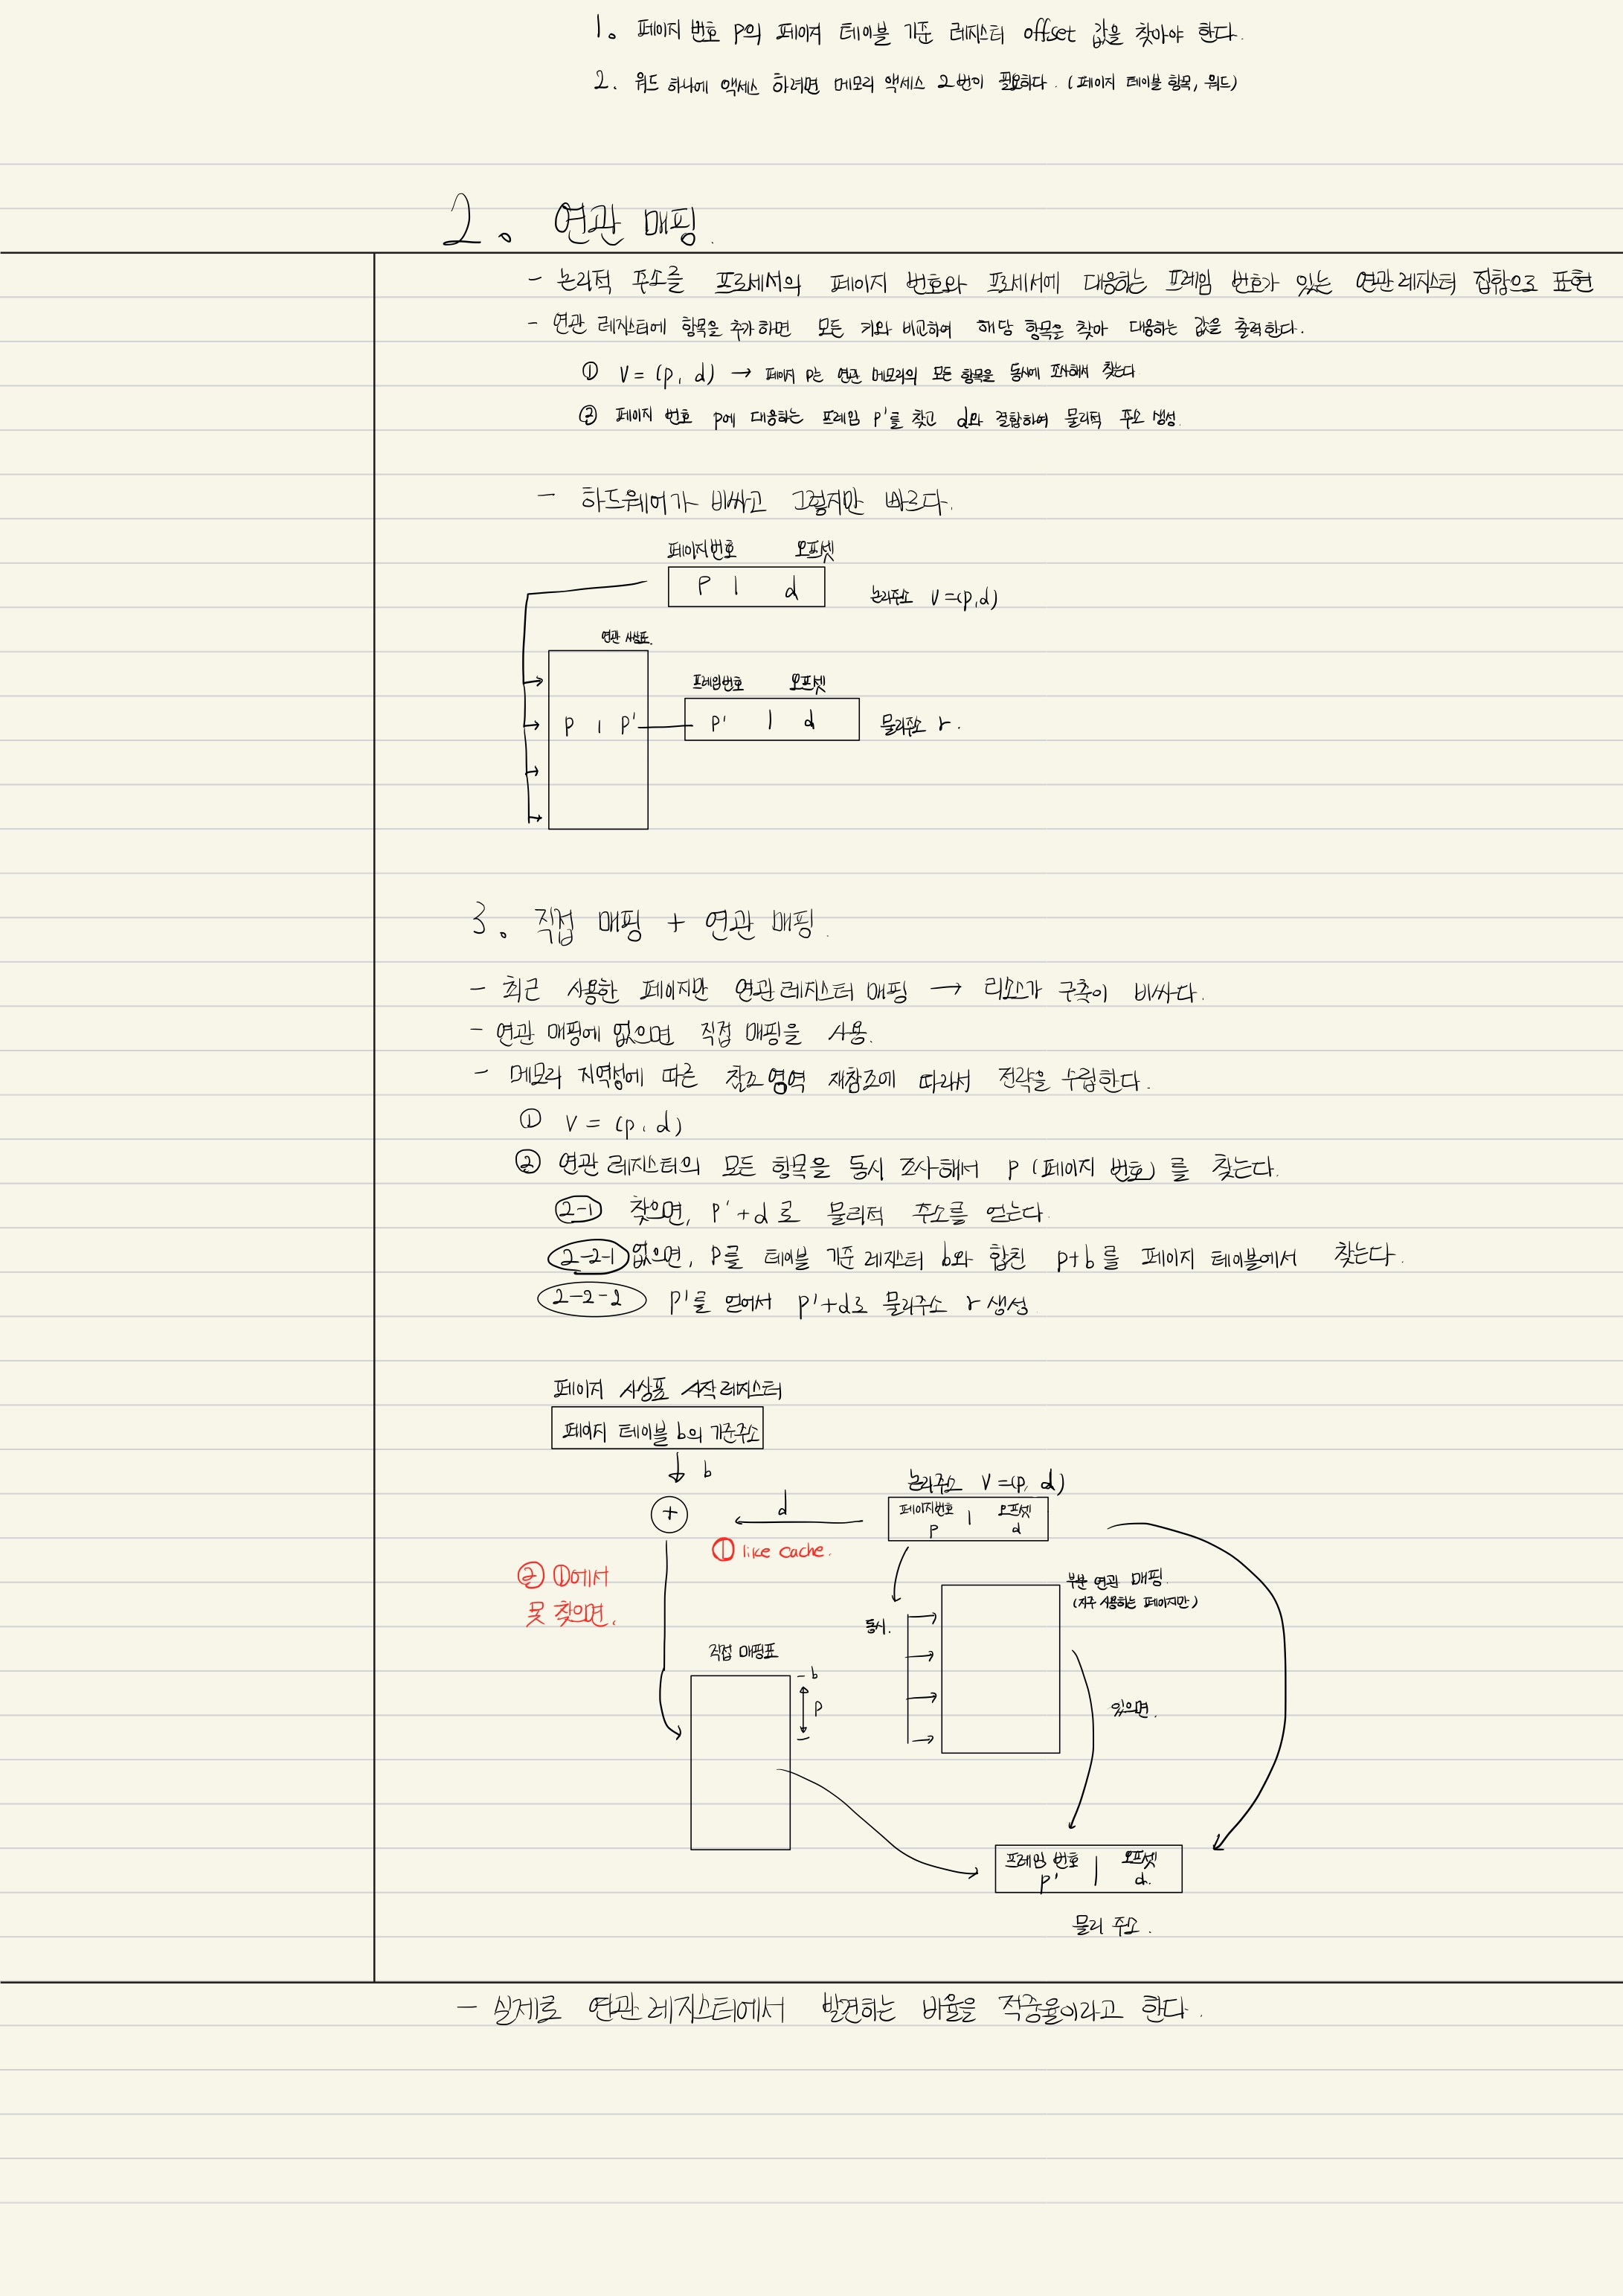 1. 페이지 번호 p의 페이지 테이블 기준 레지스터 offset 값을 찾아야 한다.
2. 워드 하나에 액세스 하려면 메모리 액세스 2번이 필요하다. (페이지 테이블 항목, 워드)
2. 연관 매핑.
- 논리적 주소를 프로세서의 페이지 번호와 프로세서에 대응하는 프레임 번호가 있는 연관 레지스터 집합으로 표현
- 연관 레지스터에 항목을 추가하면 모든 키와 비교하여 해당 항목을 찾아 대응하는 값을 출력한다.
① V = (p, d) → 페이지 p는 연관 메모리의 모든 항목을 동시에 조사해서 찾는다
② 페이지 번호 p에 대응하는 프레임 p'를 찾고 d와 결합하여 물리적 주소 생성.
- 하드웨어가 비싸고 그렇지만 빠르다.
페이지번호 오프셋
p | d
논리주소 V=(p,d)
연관 사상표.
프레임번호 오프셋
p | p' p' | d 물리주소 r.
3. 직접 매핑 + 연관 매핑.
- 최근 사용한 페이지만 연관 레지스터 매핑 → 리소스가 구축이 비싸다.
- 연관 매핑에 없으면 직접 매핑을 사용.
- 메모리 지역성에 따른 참조 영역 재참조에 따라서 전략을 수립한다.
① V = (p, d)
② 연관 레지스터의 모든 항목을 동시 조사해서 p (페이지 번호)를 찾는다.
2-1 찾으면, p'+d로 물리적 주소를 얻는다.
2-2-1 없으면, p를 테이블 기준 레지스터 b와 합친 p+b를 페이지 테이블에서 찾는다.
2-2-2 p'를 얻어서 p'+d로 물리주소 r 생성
페이지 사상표 시작 레지스터
페이지 테이블 b의 기준주소
↓ b
논리주소 V=(p, d)
페이지번호 | 오프셋
p d
+ d
① like cache.
② ①에서
못 찾으면.
부분 연관 매핑.
(자주 사용하는 페이지만)
동시.
직접 매핑표
- b
p
있으면.
프레임 번호 | 오프셋
p' d.
물리 주소.
- 실제로 연관 레지스터에서 발견하는 비율을 적중율이라고 한다.